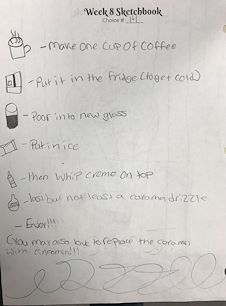 Week 8 Sketchbook
Choice #
- Make one cup of coffee
- Put it in the fridge (to get cold)
- Poor into new glass
- Put in ice
- then whip creme on top
- last but not least a caramel drizzle
- Enjoy!!!
(You may also love to replace the caramel
with cinnamon!!